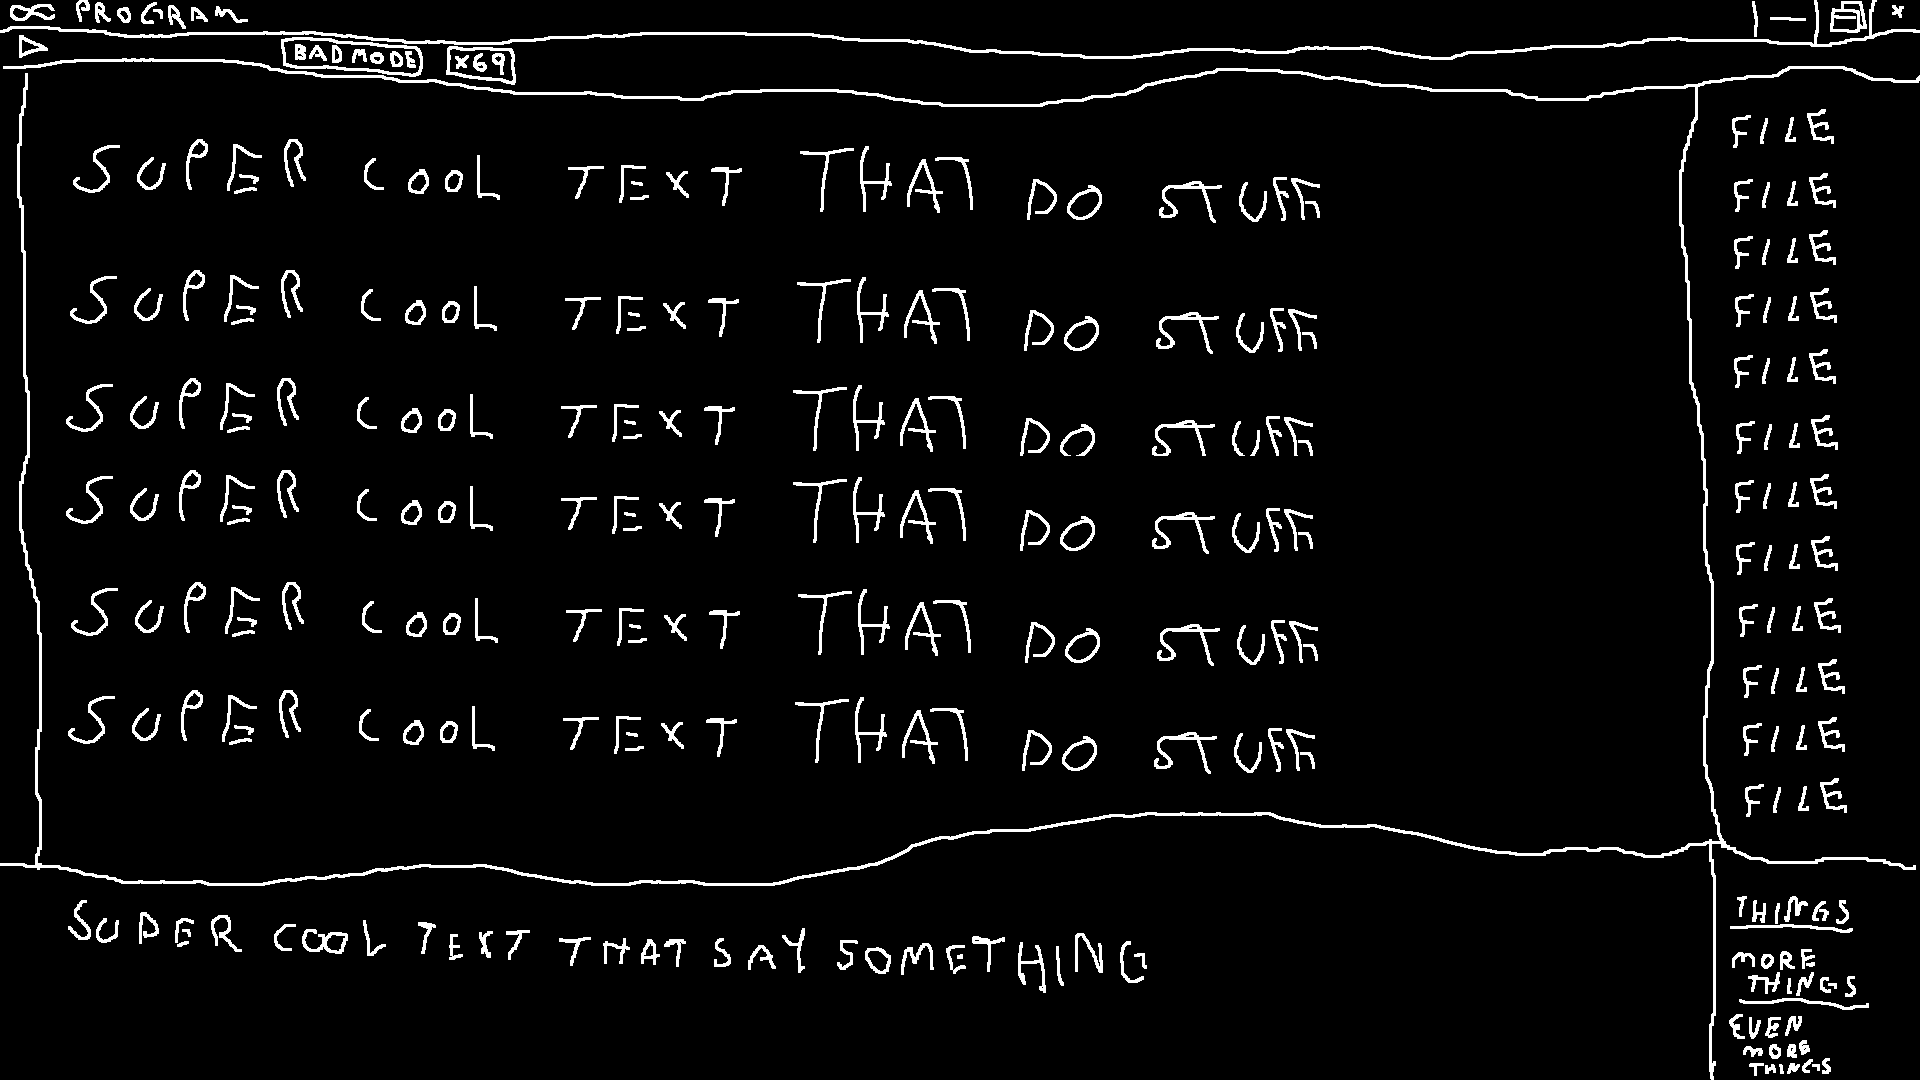 ∞ PROGRAM
BAD MODE x69
SUPER COOL TEXT THAT DO STUFF
SUPER COOL TEXT THAT DO STUFF
SUPER COOL TEXT THAT DO STUFF
SUPER COOL TEXT THAT DO STUFF
SUPER COOL TEXT THAT DO STUFF
SUPER COOL TEXT THAT DO STUFF
FILE
FILE
FILE
FILE
FILE
FILE
FILE
FILE
FILE
FILE
FILE
FILE
SUPER COOL TEXT THAT SAY SOMETHING
THINGS
MORE
THINGS
EVEN
MORE
THINGS